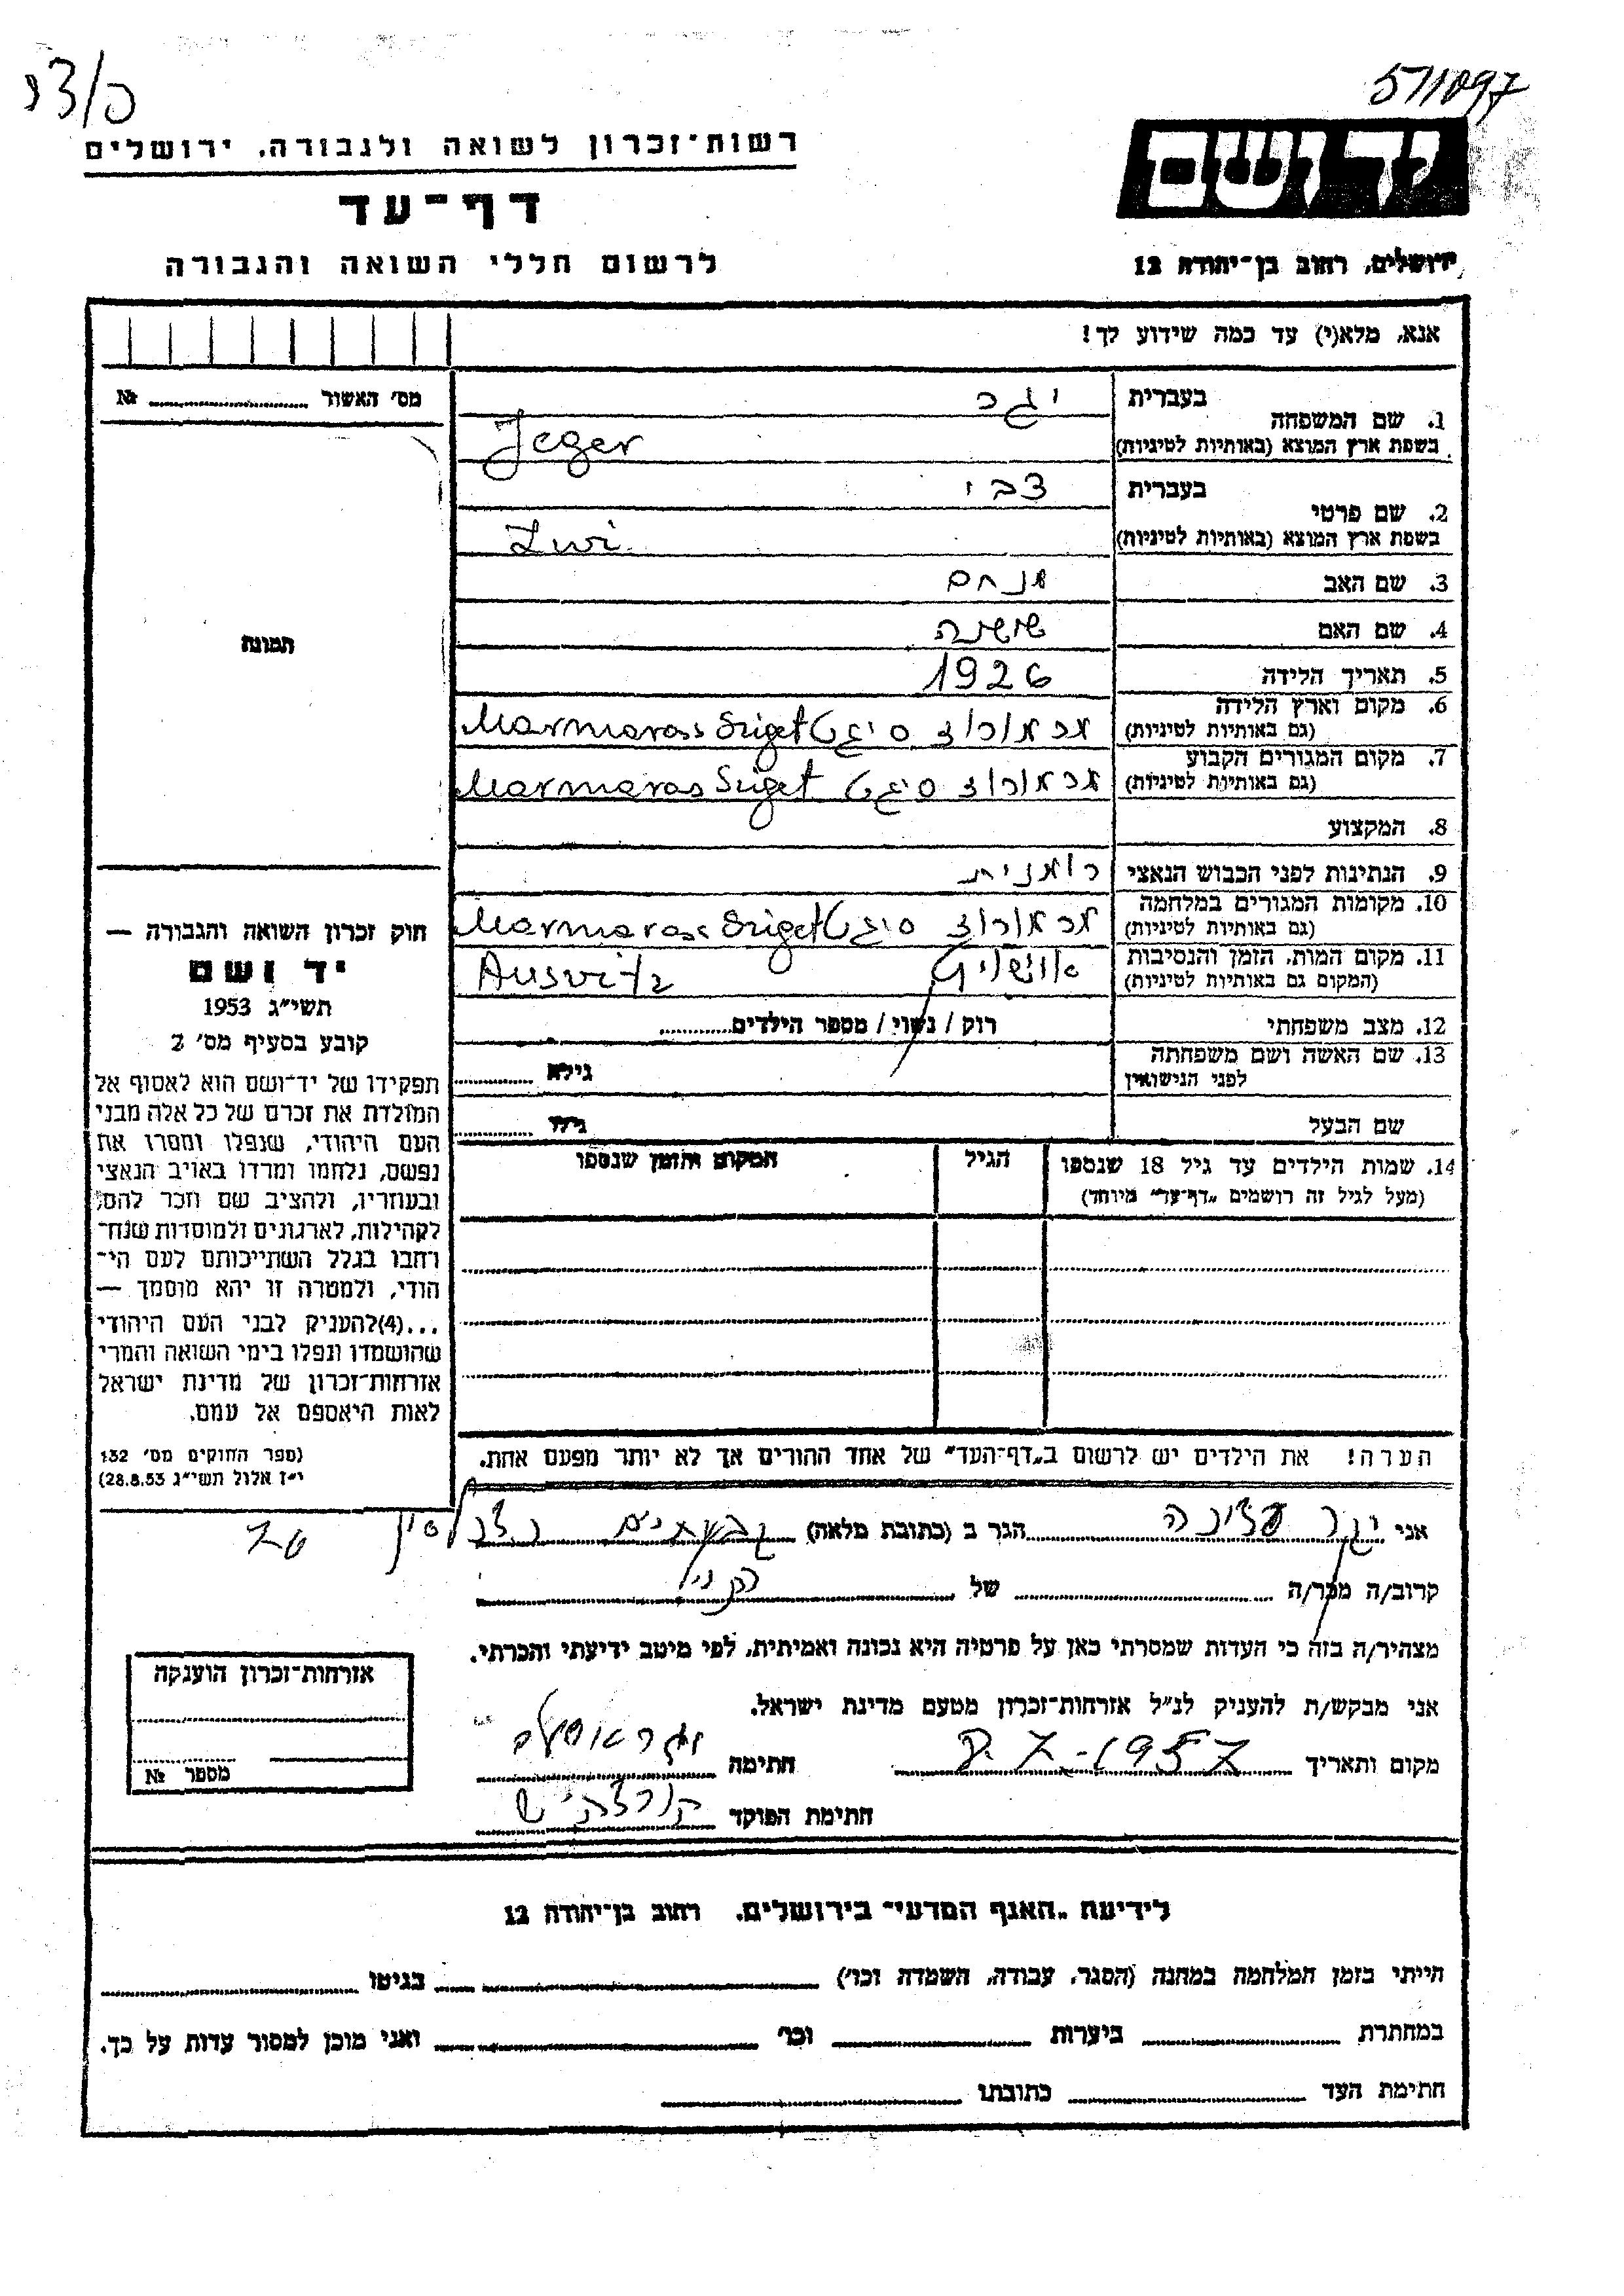 571097
רשות-זכרון לשואה ולגבורה, ירושלים
דף-עד
לרשום חללי השואה והגבורה
יד ושם
ירושלים, רחוב בן-יהודה 12
אנא, מלא(י) עד כמה שידוע לך!
מס' האשור № 
1. שם המשפחה
בעברית יגר
בשפת ארץ המוצא (באותיות לטיניות) Jeger
2. שם פרטי
בעברית צבי
בשפת ארץ המוצא (באותיות לטיניות) Zwi
3. שם האב מנחם
4. שם האם שושנה
5. תאריך הלידה 1926
6. מקום וארץ הלידה
(גם באותיות לטיניות) מרמורוצ סיגט Marmaross Sziget
7. מקום המגורים הקבוע
(גם באותיות לטיניות) מרמורוצ סיגט Marmaros Sziget
8. המקצוע
9. הנתינות לפני הכבוש הנאצי רומנית
10. מקומות המגורים במלחמה
(גם באותיות לטיניות) מרמורוצ סיגט Marmaross Sziget
11. מקום המות, הזמן והנסיבות
(המקום גם באותיות לטיניות) אושויץ Ausvitz
12. מצב משפחתי רוק / נשוי / מספר הילדים
13. שם האשה ושם משפחתה
לפני הנישואין גילא
שם הבעל גילו
14. שמות הילדים עד גיל 18 שנספו
(מעל לגיל זה רושמים "דף-עד" מיוחד)
הגיל
המקום והזמן שנספו
הערה! את הילדים יש לרשום ב"דף-העד" של אחד ההורים אך לא יותר מפעם אחת.
תמונה
חוק זכרון השואה והגבורה —
יד ושם
תשי"ג 1953
קובע בסעיף מס' 2
תפקידו של יד-ושם הוא לאסוף אל
המולדת את זכרם של כל אלה מבני
העם היהודי, שנפלו ומסרו את
נפשם, נלחמו ומרדו באויב הנאצי
ובעוזריו, ולהציב שם וזכר להם,
לקהילות, לארגונים ולמוסדות שנח-
רחבו בגלל השתייכותם לעם הי-
הודי, ולמטרה זו יהא מוסמך —
...(4) להעניק לבני העם היהודי
שהושמדו ונפלו בימי השואה והמרי
אזרחות-זכרון של מדינת ישראל
לאות היאספם אל עמם.
(ספר החוקים מס' 132
י"ז אלול תשי"ג 28.8.53)
אני יגר הגר ב (כתובת מלאה) גבעתיים
קרוב/ה מכר/ה של
מצהיר/ה בזה כי העדות שמסרתי כאן על פרטיה היא נכונה ואמיתית, לפי מיטב ידיעתי והכרתי.
אני מבקש/ת להעניק לנ"ל אזרחות-זכרון מטעם מדינת ישראל.
מקום ותאריך 8.7-1957 חתימה
חתימת הפוקד
אזרחות-זכרון הוענקה
מספר №
לידיעת "האגף המדעי" בירושלים, רחוב בן-יהודה 12
הייתי בזמן המלחמה במחנה (הסגר, עבודה, השמדה וכו') בגיטו
במחתרת ביערות וכו' ואני מוכן למסור עדות על כך.
חתימת העד כתובתו